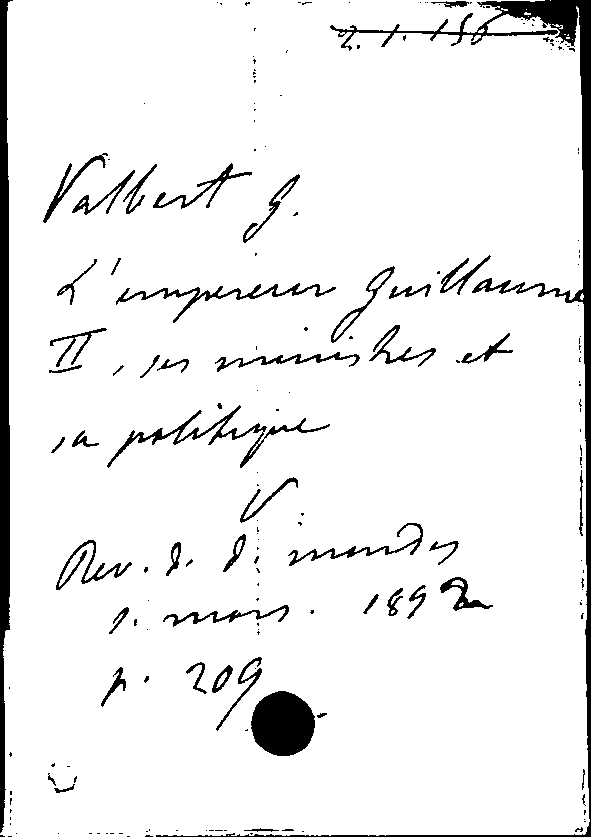 2.1.156
Valbert G.
L'empereur Guillaume
II, ses ministres et
sa politique
V
Rev. d. d. mondes
1. mars. 1892
p. 209